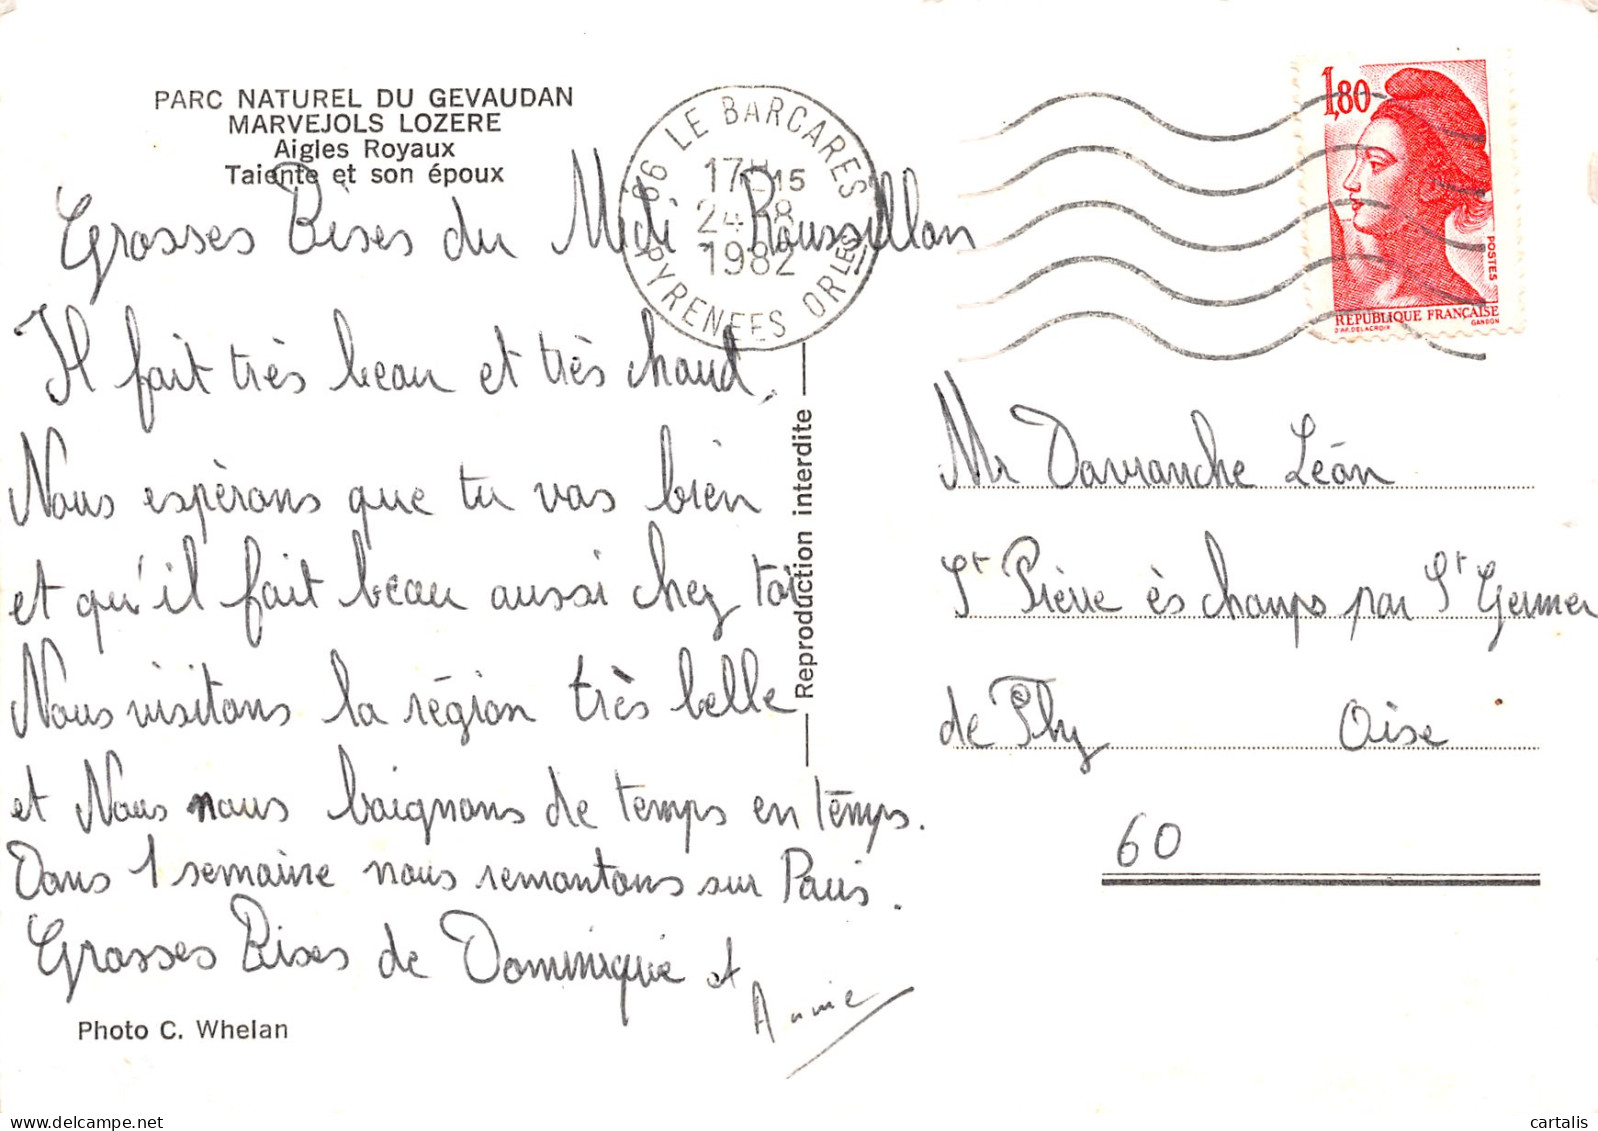 PARC NATUREL DU GEVAUDAN
MARVEJOLS LOZERE
Aigles Royaux
Taiente et son époux
66 LE BARCARES
17H15
24-8
1982
PYRENEES ORLES
1,80
POSTES
REPUBLIQUE FRANÇAISE
D'AP. DELACROIX GANDON
Grosses Bises du Midi Roussillon
Il fait très beau et très chaud.
Nous espèrons que tu vas bien
et qu'il fait beau aussi chez toi
Nous visitons la région très belle
et Nous nous baignons de temps en temps.
Dans 1 semaine nous remontons sur Paris.
Grosses Bises de Dominique et
Annie
Photo C. Whelan
Reproduction interdite
Mr Davranche Léon
St Pierre ès champs par St Germer
de Fly Oise
60
cartalis